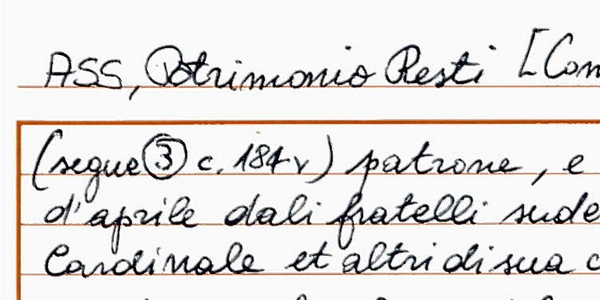 ASS, Patrimonio Resti [Con
(segue ③ c. 184 v) patrone, e
d'aprile dali fratelli sude
Cardinale et altri di sua c